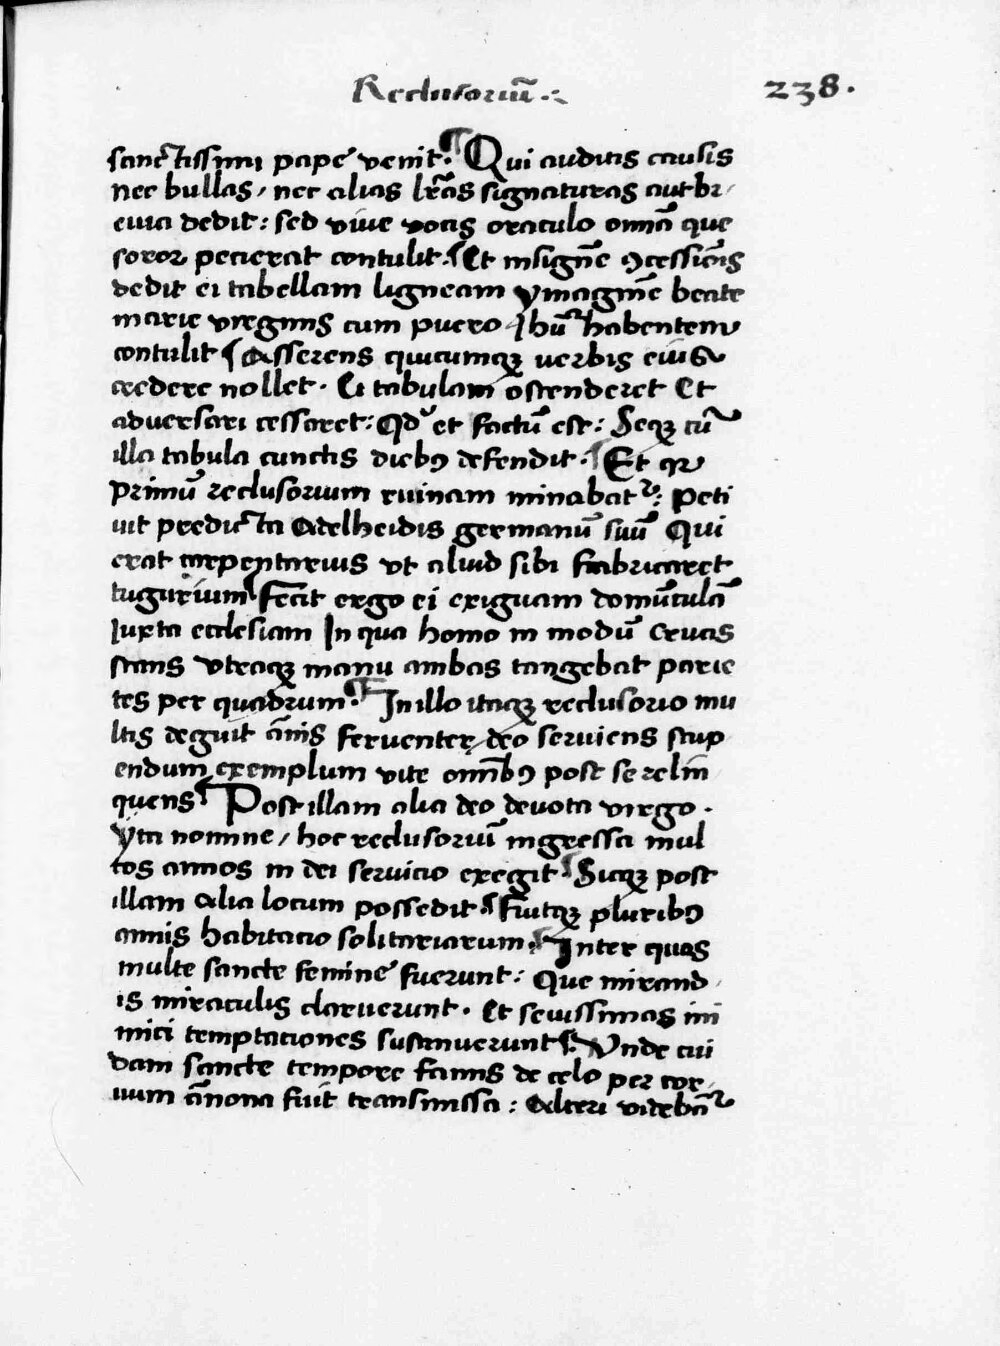 Reclusoriu͞ .~ 238.
sanctissimi pape venit. ¶ Qui auditis causis
nec bullas / nec alias lr̃as signaturas aut br /
euia dedit : sed viue vocis oraculo omn̄ia que
soror pecierat contulit. ¶ Et insigne ꝯcessiōis
dedit ei tabellam ligneam ymagine͞ beate
marie virginis cum puero habentem
contulit ¶ Asserens quicumqꝫ verbis eius
credere nollet . Ei tabulam ostenderet Et
aduersari cessaret : Qd et factu͞ est : Seqꝫ cu͞
illa tabula cunctis diebꝯ defendit . ¶ Et qꝛ
primu͞ reclusorium ruinam minabatᷣ : Peti
uit predicta Adelheidis germanu͞ suu͞ Qui
erat carpentarius vt aliud sibi fabricaret
tugurium ¶ Fecit ergo ei exiguam domu͞cula͞
Iuxta ecclesiam In qua homo in modu͞ Crucis
stans vtraqꝫ manu ambas tangebat parie
tes per quadrum . ¶ In illo itaqꝫ reclusorio mu
ltis deguit a͞nis feruenter deo seruiens stup
endum exemplum vite omnibꝯ post se relin
quens ¶ Post illam alia deo deuota virgo .
Yta nomine / hoc reclusoriu͞ ingressa mul
tos annos in dei seruicio exegit ¶ Sicqꝫ post
illam Alia locum possedit ¶ Fuitqꝫ pluribꝯ
annis habitacio solitariarum . ¶ Inter quas
multe sancte femine fuerunt : Que mirand /
is miraculis claruerunt . Et seuissimas ini
mici temptaciones sustinuerunt ¶ Vnde cui
dam sancte tempore famis de celo per cor /
uum a͞nona fuit transmissa : Alteri videbaᷣ͞